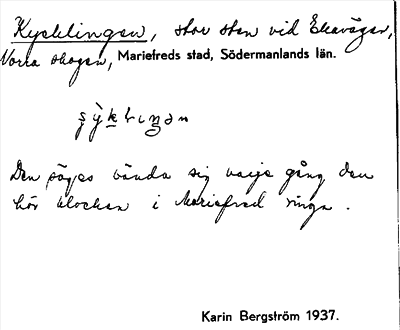 Kycklingen, stor sten vid Ekavägen,
Norra skogen, Mariefreds stad, Södermanlands län.
Den säges vända sig varje gång den
hör klockan i Mariefred ringa.
Karin Bergström 1937.